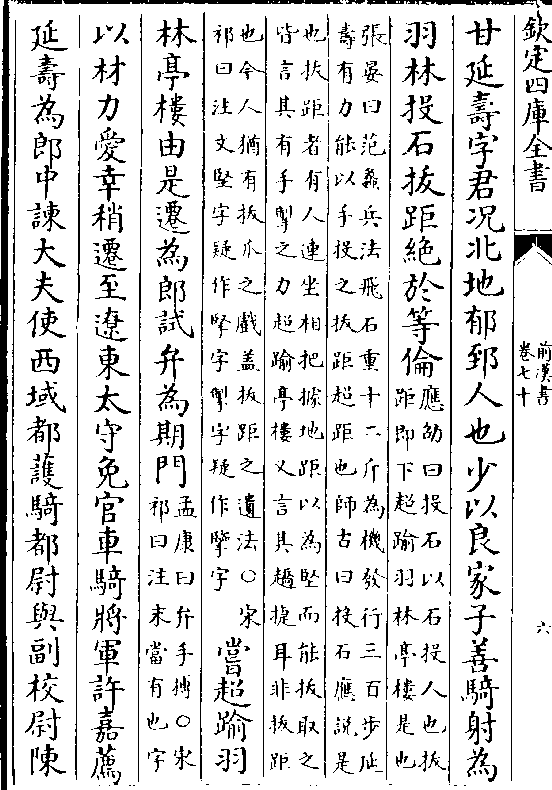 欽定四庫全書
前漢書
卷七十
六
甘延壽字君况北地郁郅人也少以良家子善騎射為
羽林投石拔距絶於等倫
應劭曰投石以石投人也拔
距即下超踰羽林亭樓是也
張晏曰范蠡兵法飛石重十二斤為機發行三百步延
壽有力能以手投之拔距超距也師古曰投石應說是
也拔距者有人連坐相把據地距以為堅而能拔取之
皆言其有手掣之力超踰亭樓又言其趫捷耳非拔距
也今人猶有拔爪之戲盖拔距之遺法○宋
祁曰注文堅字疑作腎字掣字疑作擘字
嘗超踰羽
林亭樓由是遷為郎試弁為期門
孟康曰弁手搏○宋
祁曰注末當有也字
以材力愛幸稍遷至遼東太守免官車騎將軍許嘉薦
延壽為郎中諫大夫使西域都護騎都尉與副校尉陳